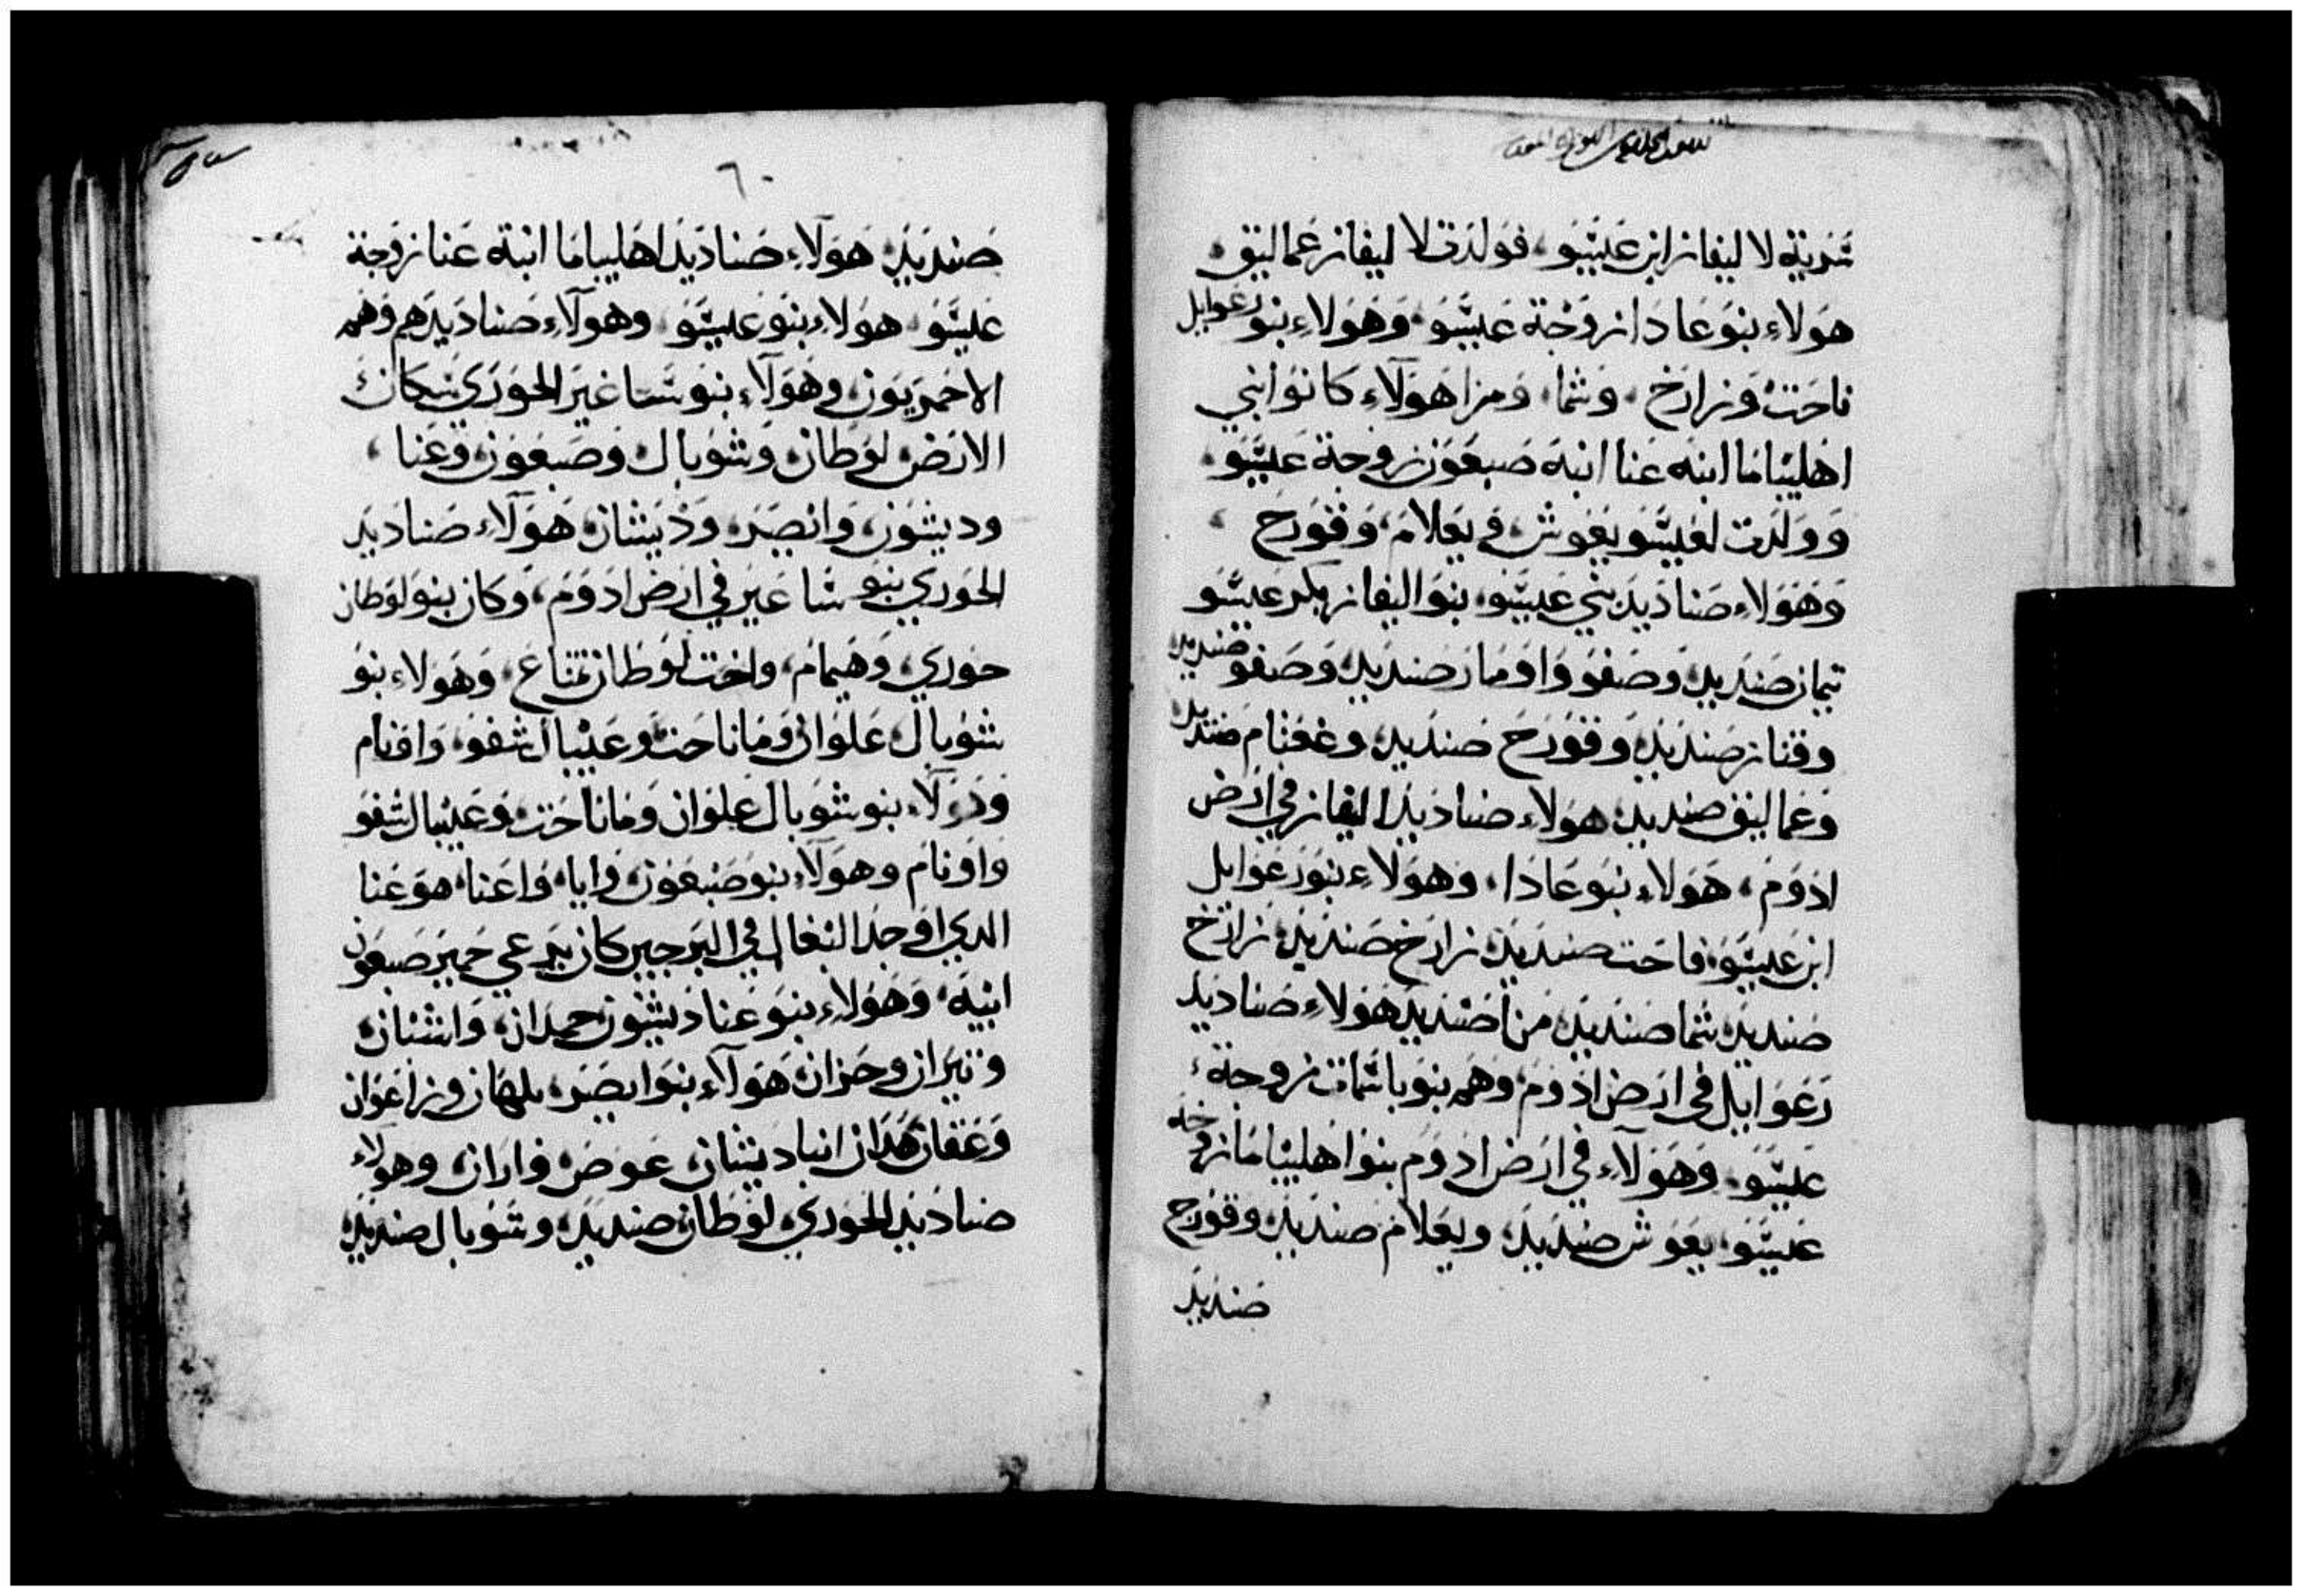 سرية لاليفاز ابن عيسو، فولدت لاليفاز عماليق،
هولاء بنو عادا زوجة عيسو، وهولاء بنو رعوايل
ناحت وزارخ، وشما، ومزا هولاء كانوا بني
اهليباما ابنة عنا ابنة صبعون زوجة عيسو،
وولدت لعيسو يعوش، ويعلام، وقورح،
وهولاء صناديد بني عيسو، بنو اليفاز بكر عيسو
تيمان صنديد، وصفو واومار صنديد، وصفو صنديد
وقناز صنديد، وقورح صنديد، وغعثام صنديد
وعماليق صنديد، هولاء صناديد اليفاز في ارض
ادوم، هولاء بنو عادا، وهولاء بنو رعوايل
ابن عيسو، ناحت صنديد، زارخ صنديد، زارخ
صنديد، شما صنديد، مزا صنديد، هولاء صناديد
رعوايل في ارض ادوم، وهم بنو باسمات زوجة،
عيسو، وهولاء في ارض ادوم بنو اهليباما زوجة
عيسو، يعوش صنديد، ويعلام صنديد، وقورح
صنديد
٦٠
صنديد، هولاء صناديد اهليباما ابنة عنا زوجة
عيسو، هولاء بنو عيسو، وهولاء صناديدهم وهم
الاحمريون، وهولاء بنو ساغير الحوري سكان
الارض، لوطان، وشوبال، وصبعون، وعنا،
وديشون، وايصر، وديشان، هولاء صناديد
الحوري بنو ساعير في ارض ادوم، وكان بنو لوطان
حوري، وهيمام، واخت لوطان تمناع، وهولاء بنو
شوبال، علوان، وماناحت، وعيبال، شفو، واونام
وهولاء بنو شوبال علوان وماناحت، وعيبال شفو
واونام وهولاء بنو صبعون، وايا، واعنا، هو عنا
الدي اوجد البغال في البر حين كان يرعي حمير صبعون
ابيه، وهولاء بنو عنا ديشون، حمدان، واشبان،
ويثران وحران، هولاء بنو ايصر، بلهان وزاعوان
وعقان، هدان ابنا ديشان، عوض، واران، وهولاء
صناديد الحوري، لوطان صنديد، وشوبال صنديد،